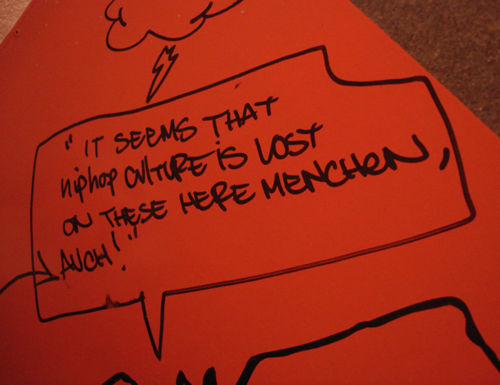 "IT SEEMS THAT
hiphop CULTURE IS LOST
ON THESE HERE MENCHEN,
AUCH!"